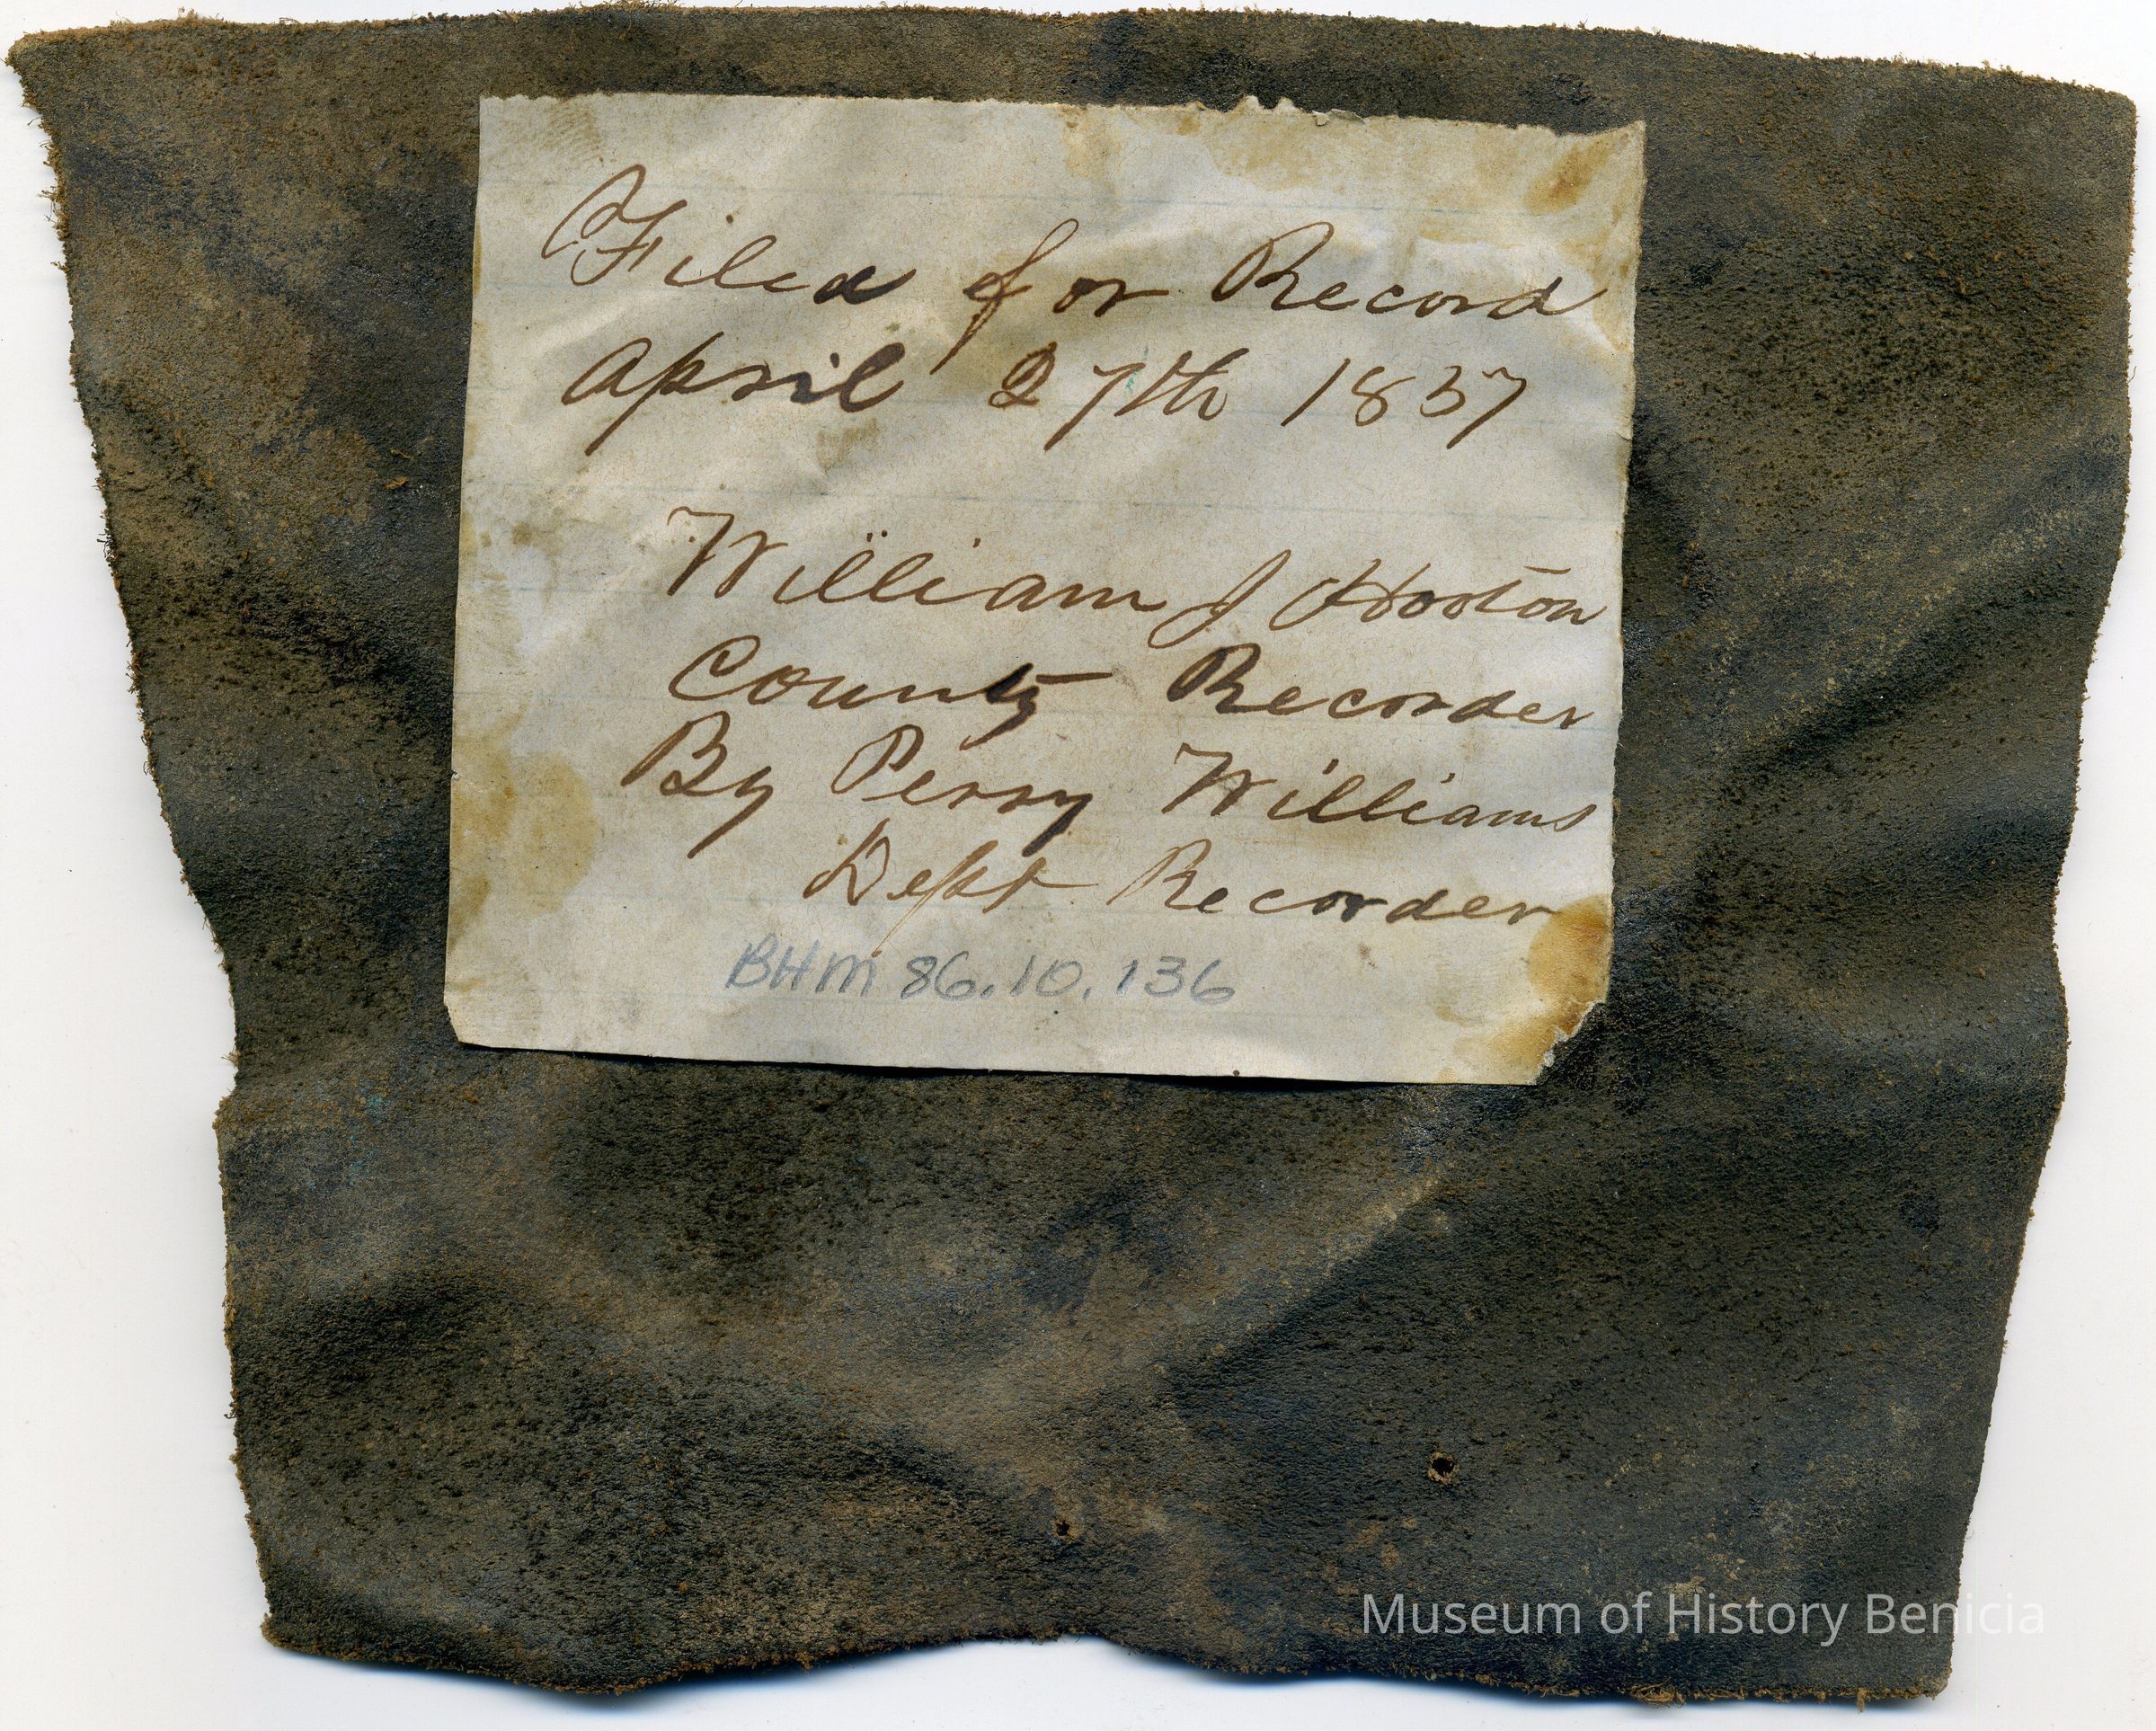 Filed for Record
April 27th 1857
William J Hooton
County Recorder
By Perry Williams
Dept Recorder
BHM 86.10.136
Museum of History Benicia